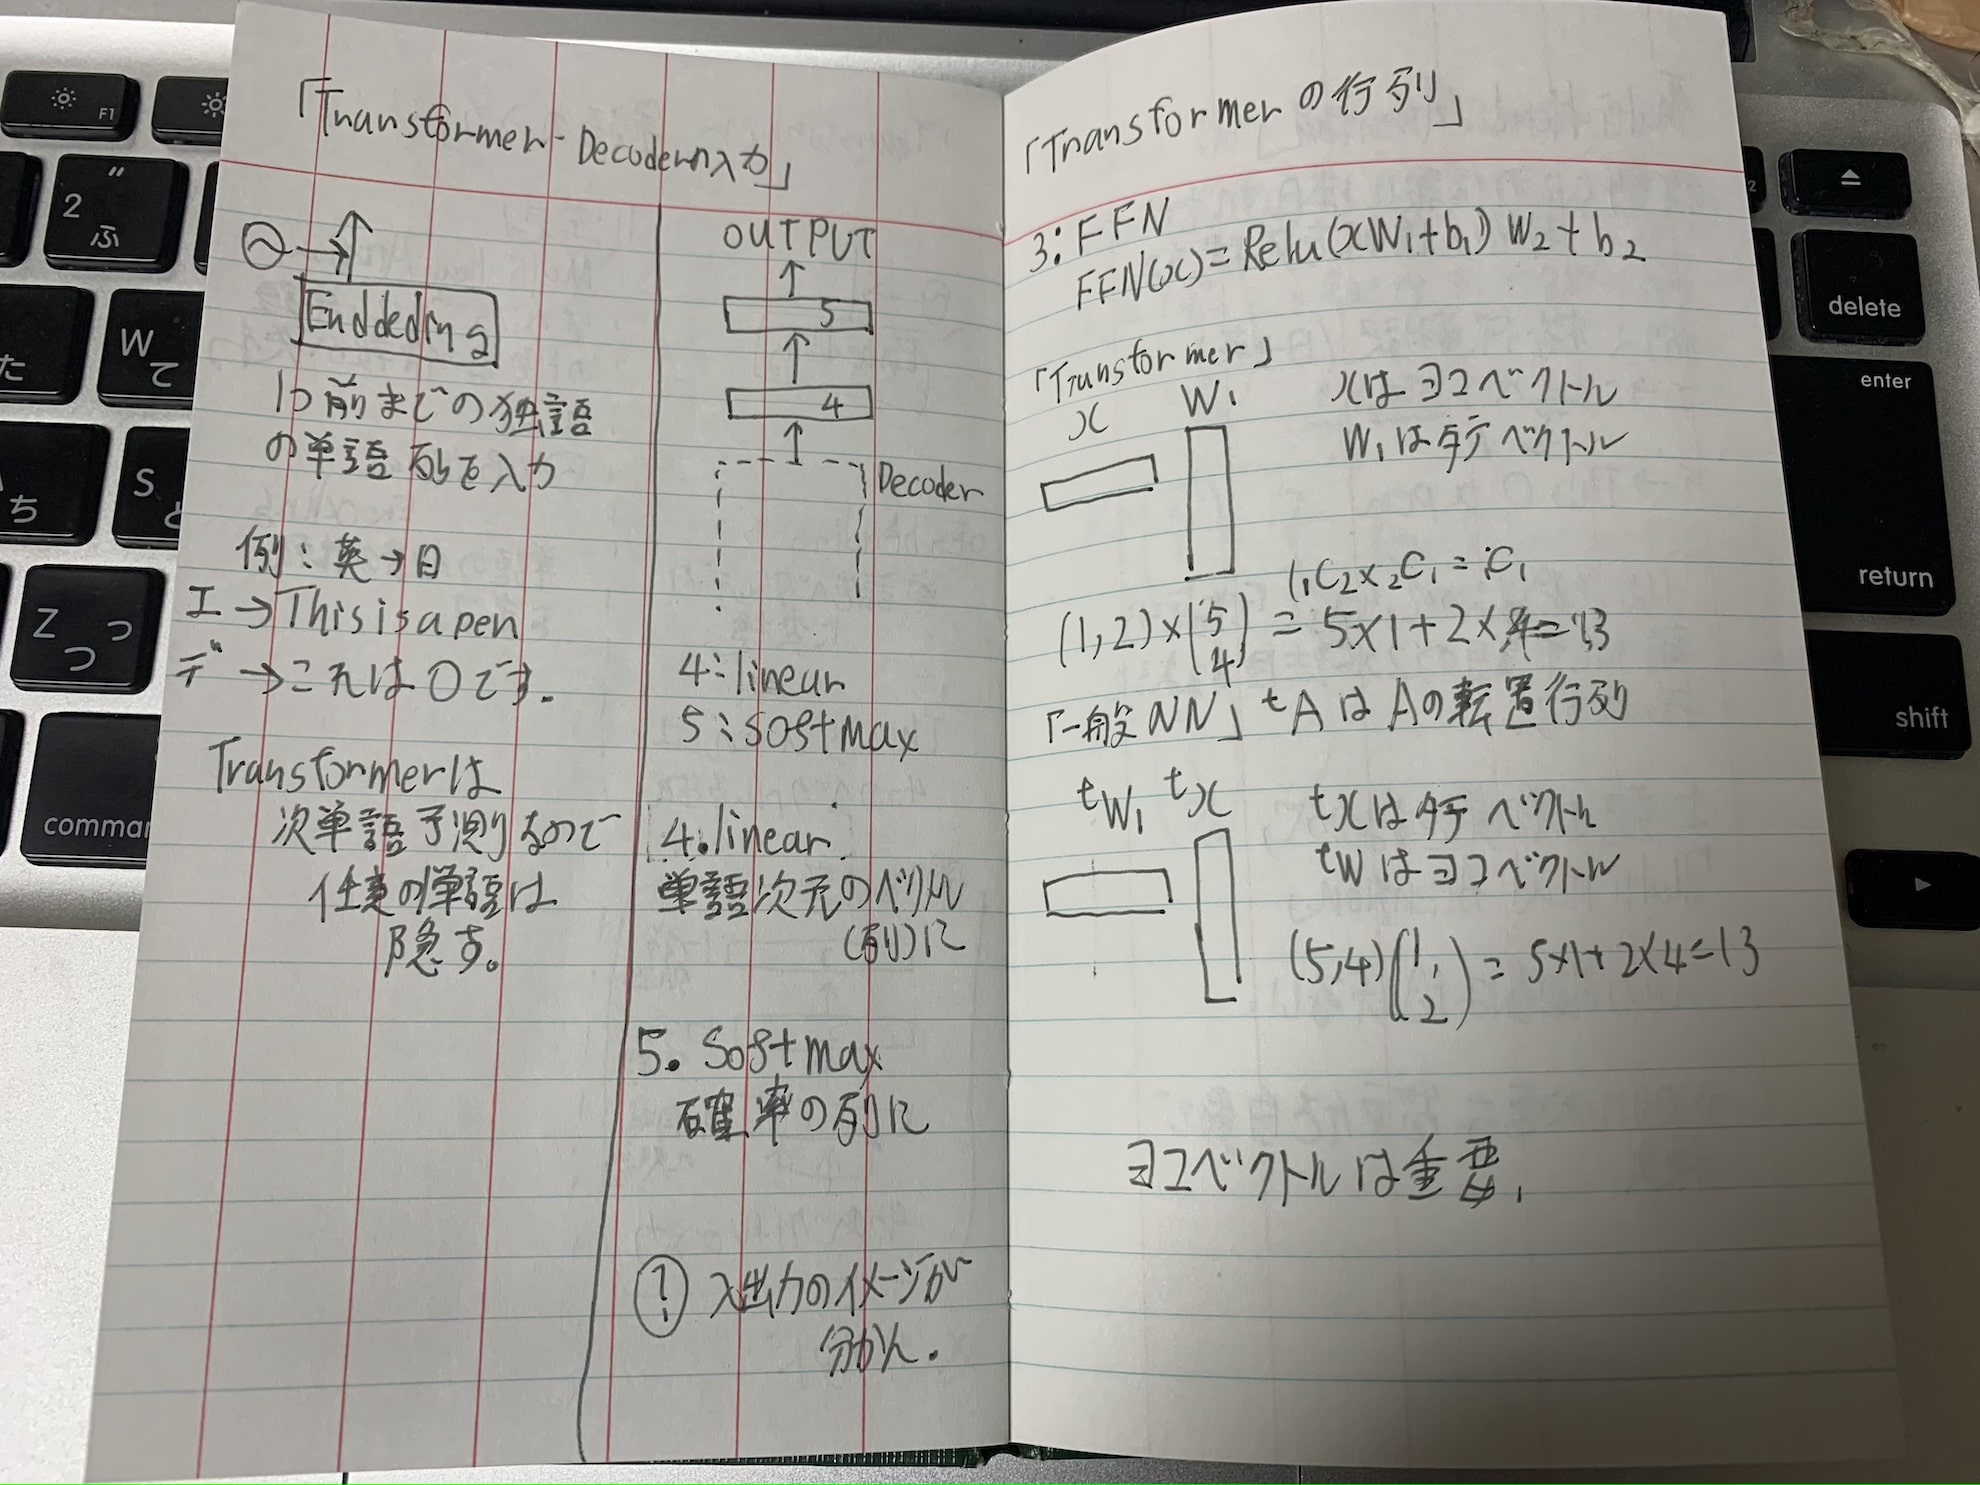 「Transformer-Decoderの入力」
Enddeding
1つ前までの独語
の単語列を入力
例：英→日
エ→This is a pen
デ→これは〇です。
Transformerは
次単語予測なので
任意の単語は
隠す。
OUTPUT
5
4
Decoder
4:linear
5:softmax
4.linear
単語次元のベクトル
(列)に
5. Softmax
確率の列に
? 入出力のイメージが
分からん.
「Transformerの行列」
3:FFN
FFN(x)=Relu(xW₁+b₁)W₂+b₂
「Transformer」
x W₁
xはヨコベクトル
W₁はタテベクトル
(1,2)×(5 4)=5×1+2×4=13
「一般NN」tAはAの転置行列
tW₁ tx
txはタテベクトル
tWはヨコベクトル
(5,4)(1, 2)=5×1+2×4=13
ヨコベクトルは重要.
F1
2
"
ふ
W
て
た
S
と
ち
Z
つ
っ
delete
enter
return
shift